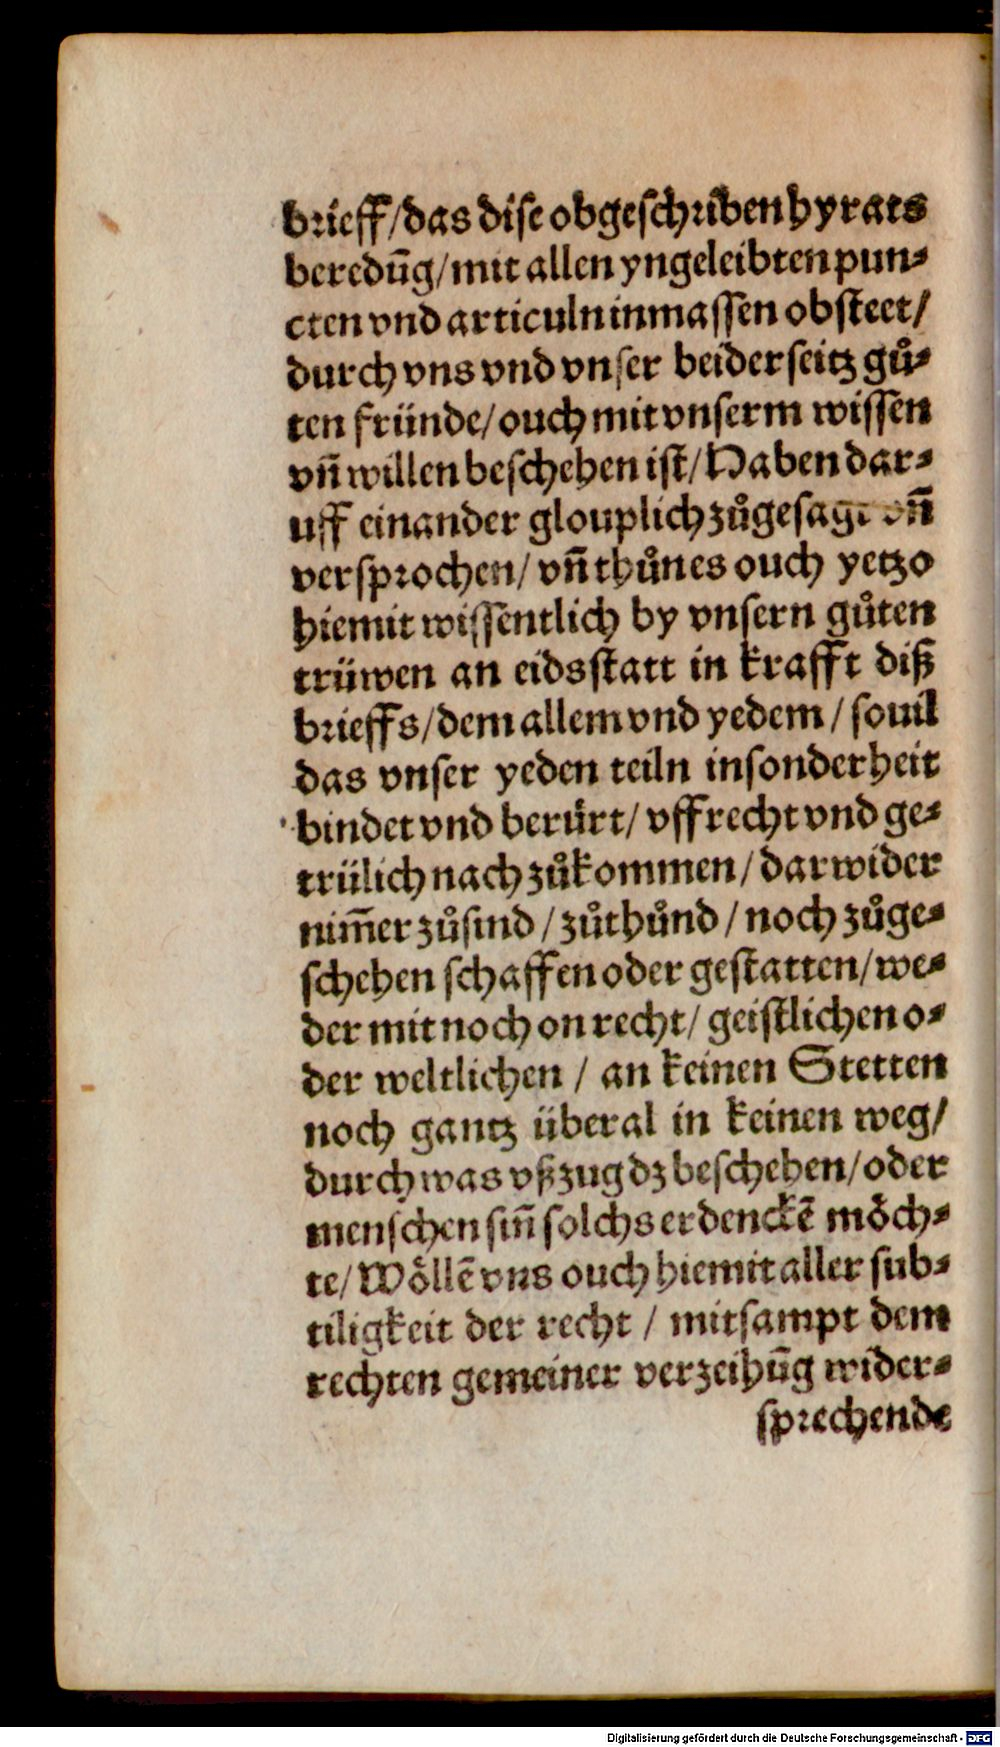 brieff/das dise obgeschriben hyrats
beredūg/mit allen yngeleibten pun⸗
cten vnd articuln inmassen obsteet/
durch vns vnd vnser beiderseitz gů⸗
ten fründe/ouch mit vnserm wissen
vñ willen beschehen ist/Haben dar⸗
uff einander glouplich zůgesagt vñ
versprochen/vñ thůnes ouch yetzo
hiemit wissentlich by vnsern gůten
trüwen an eidsstatt in krafft diß
brieffs/dem allem vnd yedem/souil
das vnser yeden teiln insonderheit
bindet vnd berürt/vffrecht vnd ge⸗
trülich nach zůkommen/darwider
nim̄er zůsind/zůthůnd/noch zůge⸗
schehen schaffen oder gestatten/we⸗
der mit noch on recht/geistlichen o⸗
der weltlichen/an keinen Stetten
noch gantz überal in keinen weg/
durch was vßzug dz beschehen/oder
menschen sin̄ solchs erdenckē möch⸗
te/Wöllē vns ouch hiemit aller sub⸗
tiligkeit der recht/mitsampt dem
rechten gemeiner verzeihūg wider⸗
sprechende
Digitalisierung gefördert durch die Deutsche Forschungsgemeinschaft - DFG